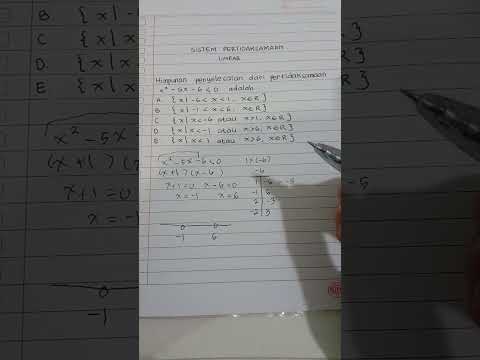 SISTEM PERTIDAKSAMAAN
LINEAR
Himpunan penyelesaian dari pertidaksamaan
x² - 5x - 6 < 0 adalah
A. {x | -6 < x < 1, x∈R}
B. {x | -1 < x < 6, x∈R}
C. {x | x < -6 atau x > 1, x∈R}
D. {x | x < -1 atau x > 6, x∈R}
E. {x | x < 1 atau x > 6, x∈R}
x² - 5x - 6 < 0
(x+1) (x-6)
x+1 = 0 x-6 = 0
x = -1 x = 6
1×(-6)
-6
1 -6 -5
-1 6
2 -3
-2 3
0 0
-1 6